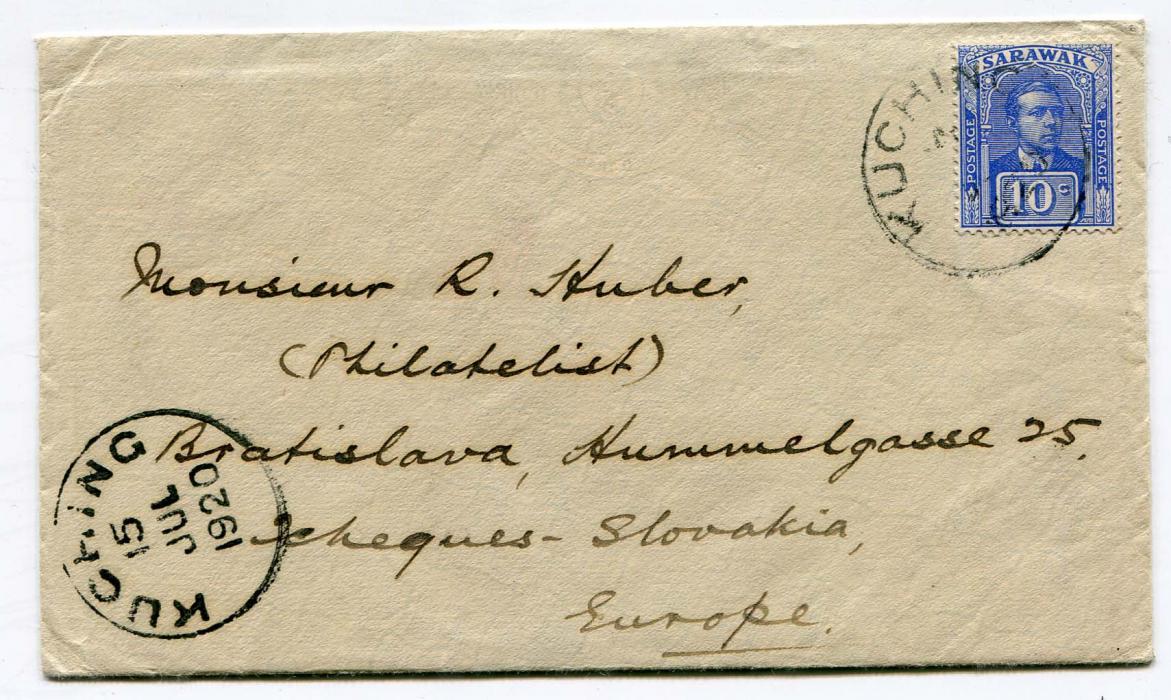 SARAWAK
POSTAGE
POSTAGE
10c
KUCHIN
Monsieur R. Huber,
(Philatelist)
Bratislava, Hummelgasse 25.
Tcheques-Slovakia,
Europe.
KUCHING
15
JUL
1920